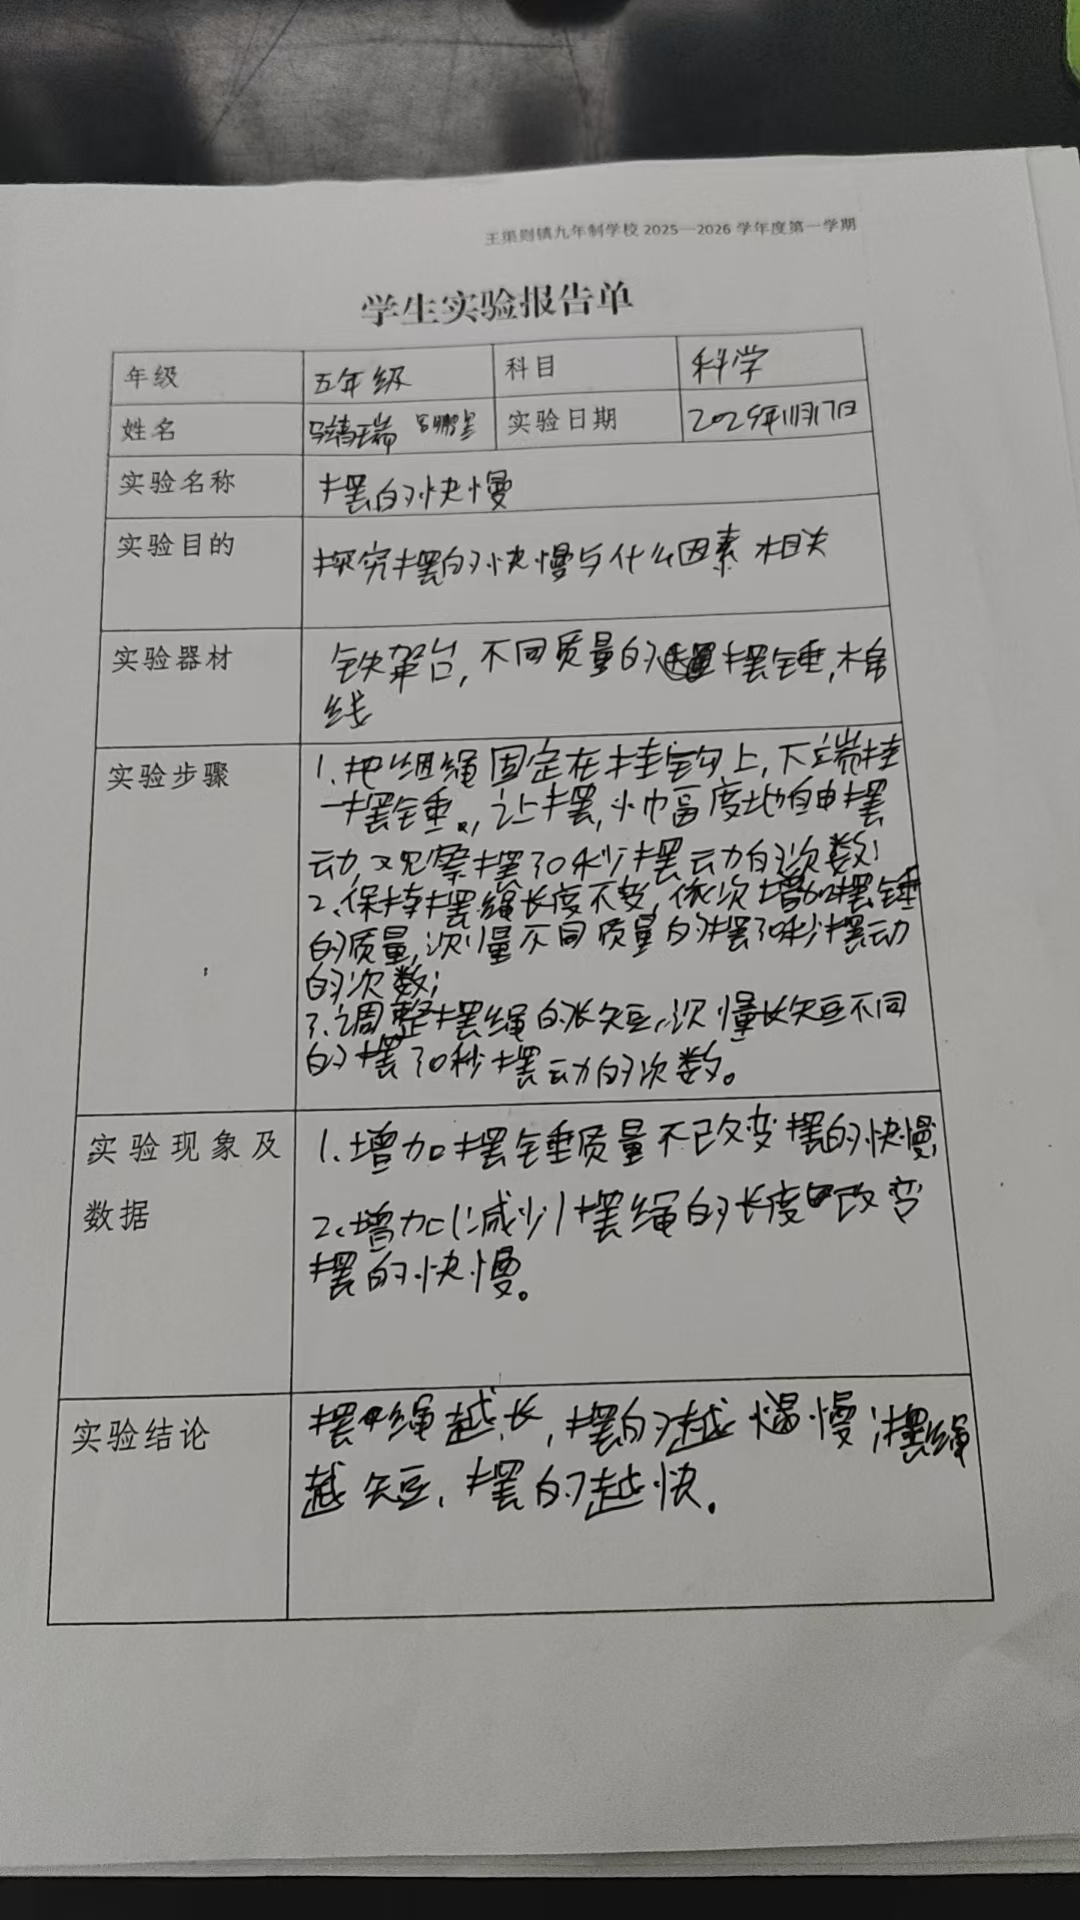 王渠则镇九年制学校 2025—2026 学年度第一学期
学生实验报告单
年级 五年级 科目 科学
姓名 实验日期 2025年11月17日
实验名称 摆的快慢
实验目的 探究摆的快慢与什么因素相关
实验器材 铁架台,不同质量的摆锤,棉
线
实验步骤 1.把细绳固定在挂钩上,下端挂
一摆锤,让摆,小幅度地自由摆
动,观察摆30秒摆动的次数;
2.保持摆绳长度不变,依次增加摆锤
的质量,测量不同质量的摆30秒摆动
的次数;
3.调整摆绳的长短,测量长短不同
的摆30秒摆动的次数。
实验现象及 1.增加摆锤质量不改变摆的快慢;
数据 2.增加(减少)摆绳的长度改变
摆的快慢。
实验结论 摆绳越长,摆的越慢;摆绳
越短,摆的越快.